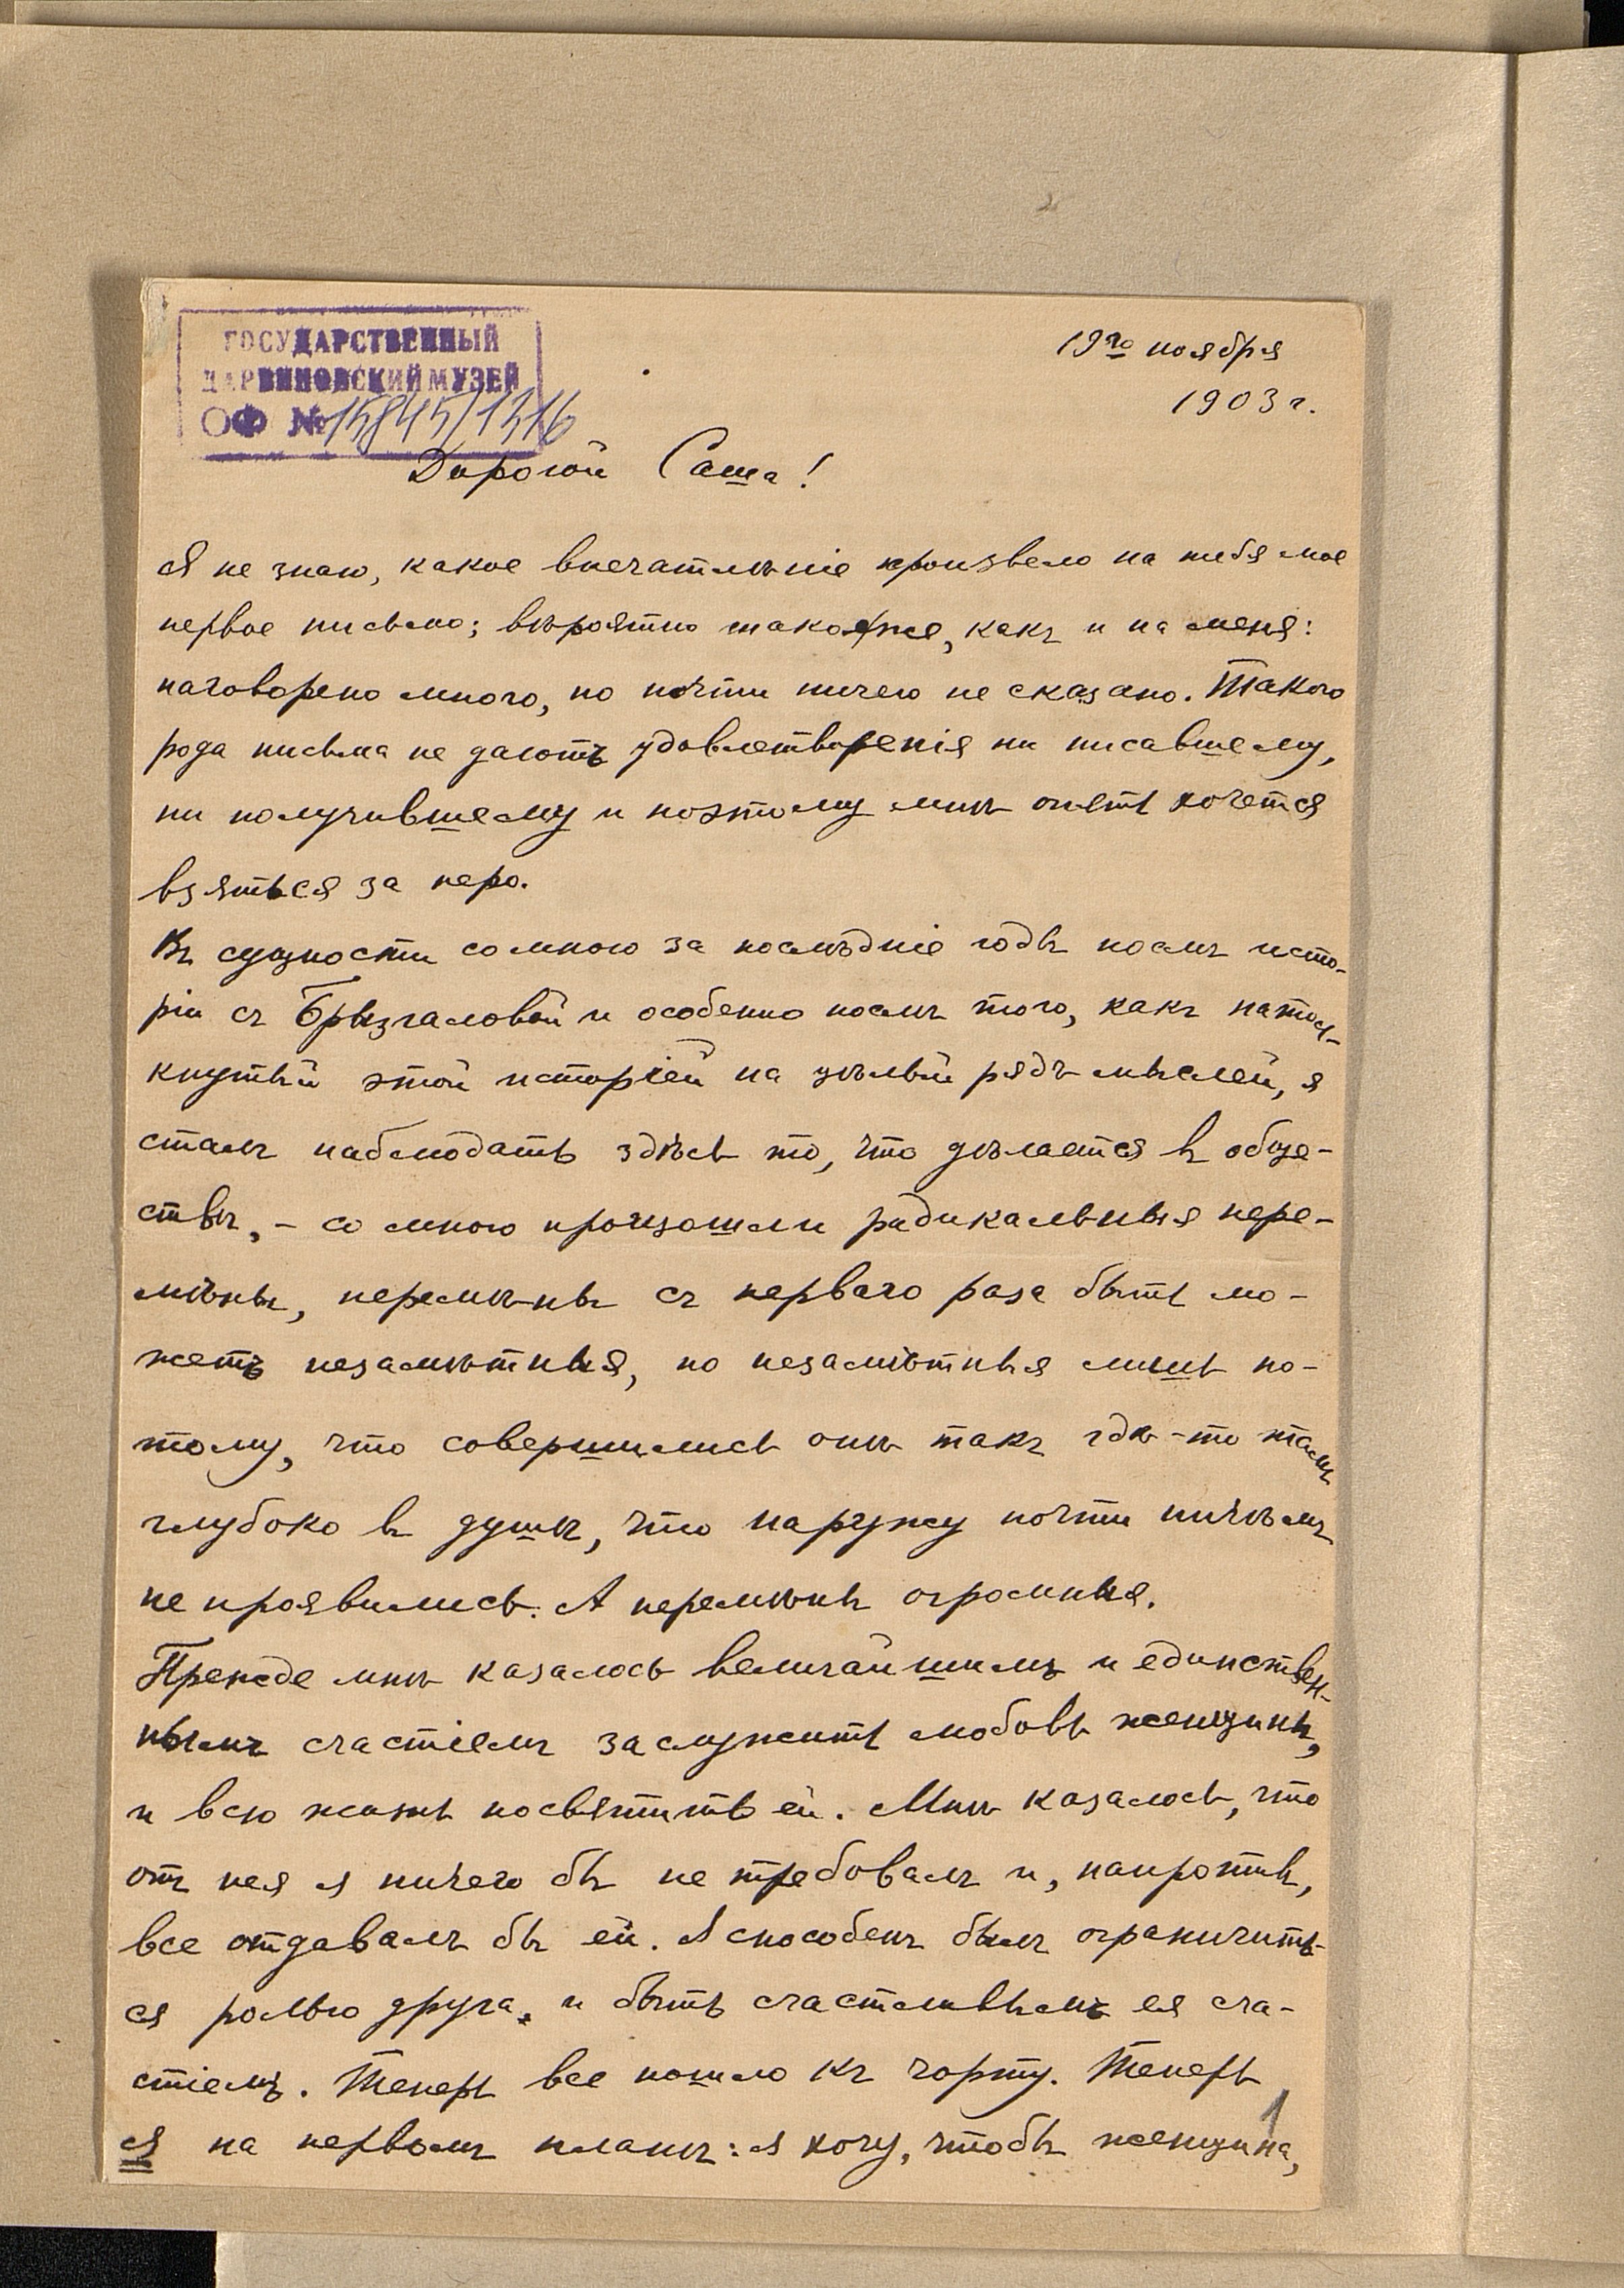 ГОСУДАРСТВЕННЫЙ
ДАРВИНОВСКИЙ МУЗЕЙ
ОФ № 15845/1316
19го ноября
1903 г.
Дорогой Саша!
Я не знаю, какое впечатлѣніе произвело на тебя мое
первое письмо; вѣроятно такое же, какъ и на меня:
наговорено много, но почти ничего не сказано. Такого
рода письма не даютъ удовлетворенія ни писавшему,
ни получившему и поэтому мнѣ опять хочется
взяться за перо.
Въ сущности со мною за послѣдніе годы послѣ исто-
ріи съ Брызгаловой и особенно послѣ того, какъ натол-
кнутый этой исторіей на цѣлый рядъ мыслей, я
сталъ наблюдать здѣсь то, что дѣлается въ обще-
ствѣ, - со мною произошли радикальныя пере-
мѣны, перемѣны съ перваго раза быть мо-
жетъ незамѣтныя, но незамѣтныя лишь по-
тому, что совершились онѣ такъ гдѣ-то тамъ
глубоко въ душѣ, что наружу почти ничѣмъ
не проявились. А перемѣны огромныя.
Прежде мнѣ казалось величайшимъ и единствен-
нымъ счастіемъ заслужить любовь женщины,
и всю жизнь посвятить ей. Мнѣ казалось, что
отъ нея я ничего бы не требовалъ и, напротивъ,
все отдавалъ бы ей. Я способенъ былъ ограничить-
ся ролью друга и быть счастливымъ ея сча-
стіемъ. Теперь все пошло къ чорту. Теперь
я на первомъ планѣ: я хочу, чтобы женщина,
1